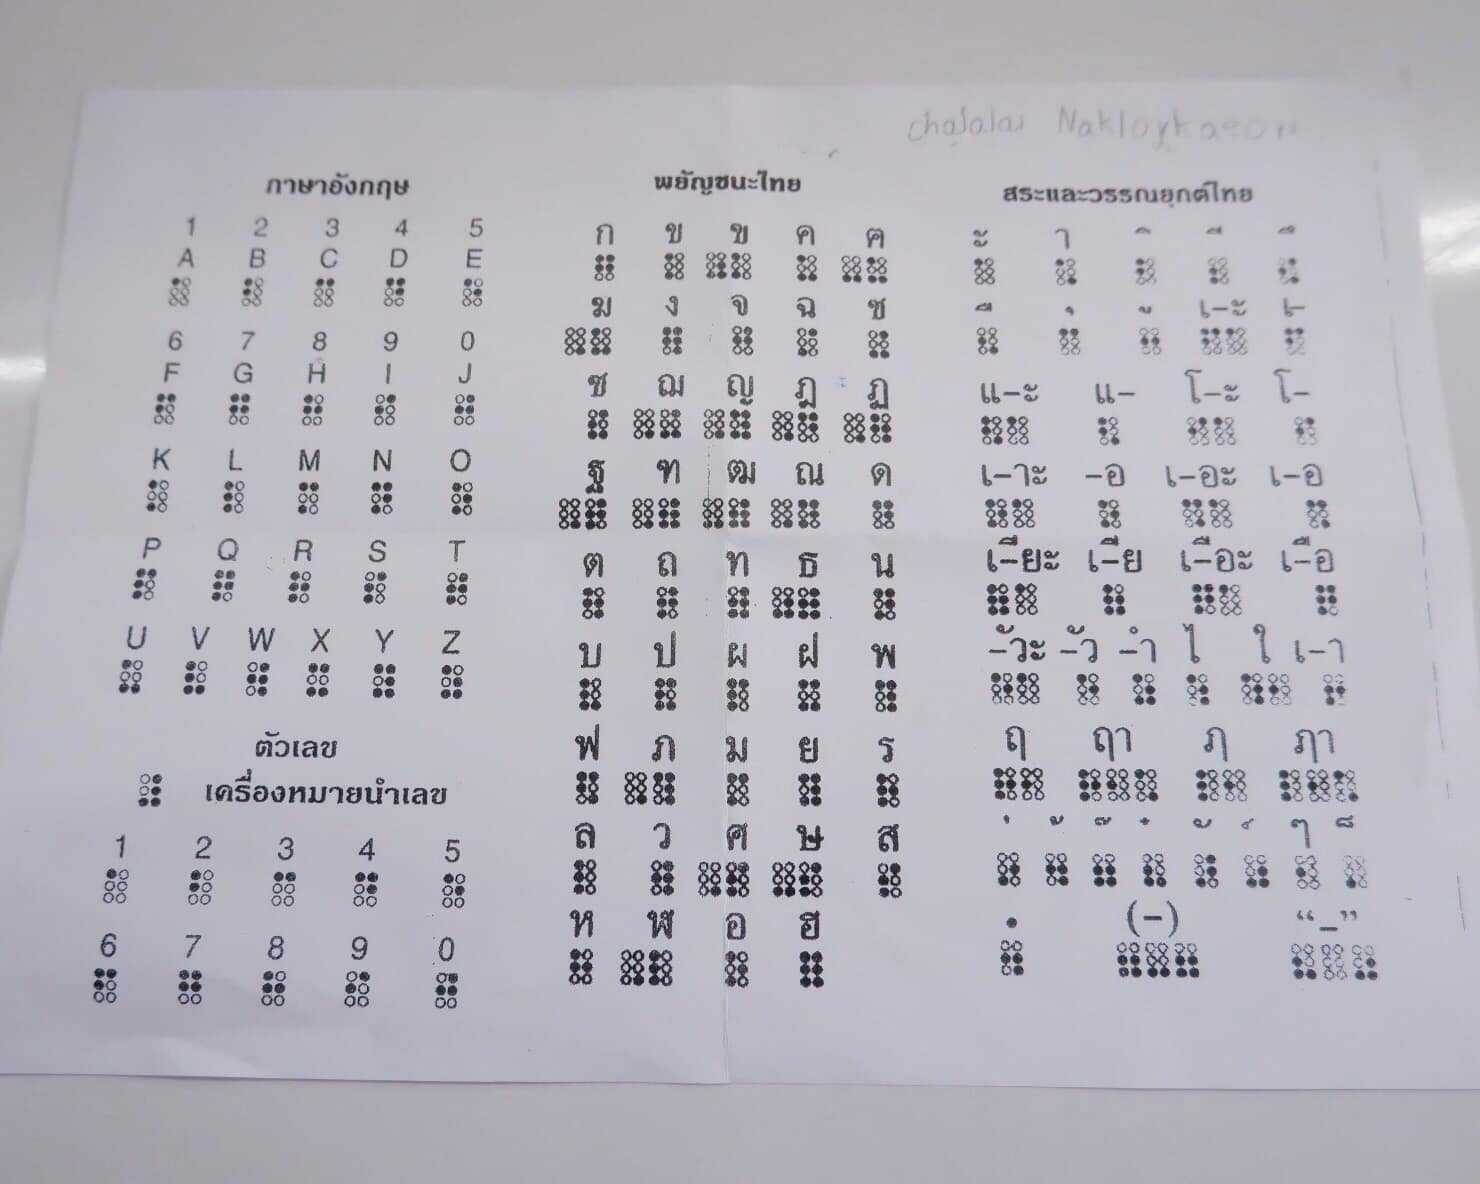 ภาษาอังกฤษ
1 2 3 4 5
A B C D E
6 7 8 9 0
F G H I J
K L M N O
P Q R S T
U V W X Y Z
ตัวเลข
เครื่องหมายนำเลข
1 2 3 4 5
6 7 8 9 0
พยัญชนะไทย
ก ข ฃ ค ฅ
ฆ ง จ ฉ ช
ซ ฌ ญ ฎ ฏ
ฐ ฑ ฒ ณ ด
ต ถ ท ธ น
บ ป ผ ฝ พ
ฟ ภ ม ย ร
ล ว ศ ษ ส
ห ฬ อ ฮ
Nakloykaeow
สระและวรรณยุกต์ไทย
ะ า ิ ี ึ
ื ุ ู เ-ะ เ-
แ-ะ แ- โ-ะ โ-
เ-าะ -อ เ-อะ เ-อ
เ-ียะ เ-ีย เ-ือะ เ-ือ
-ัวะ -ัว -ำ ไ ใ เ-า
ฤ ฤา ฦ ฦา
่ ้ ๊ ๋ ั ์ ๆ ็
. (-) “_”